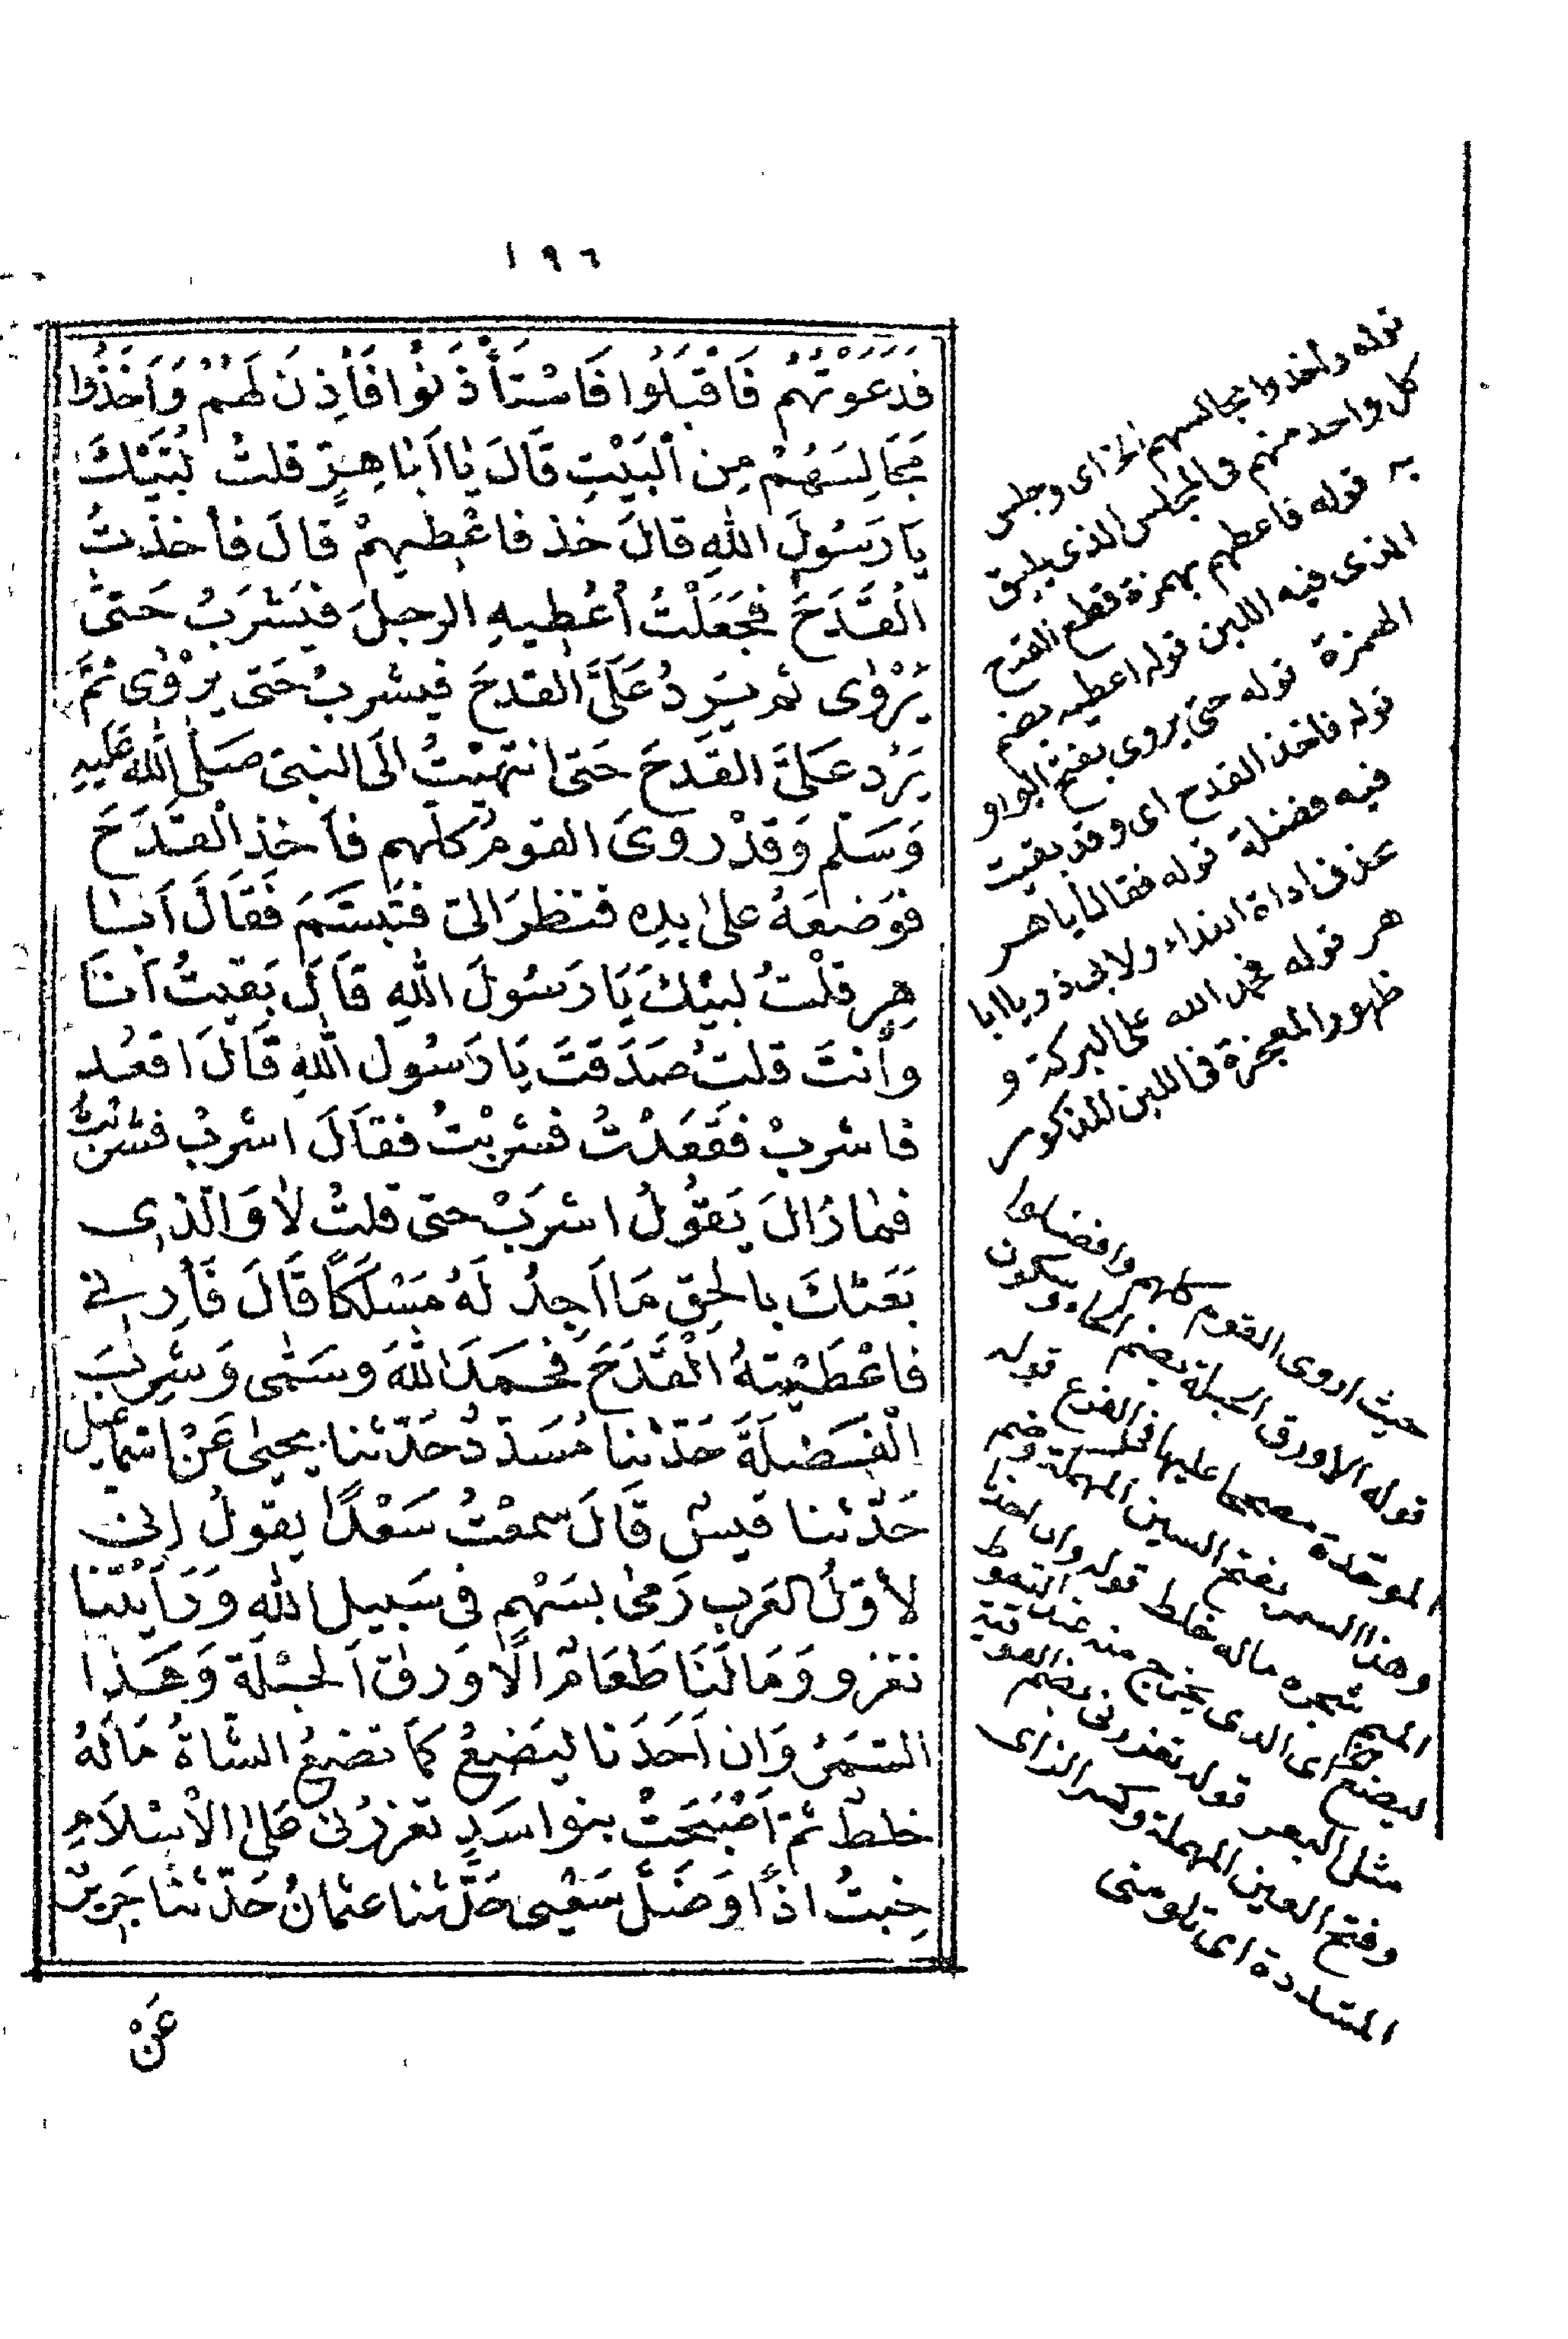 ١٩٦
فَدَعَوْتُهُمْ فَاَقْبَلُوا فَاسْتَأْذَنُوا فَاَذِنَ لَهُمْ وَاَخَذُوا
مَجَالِسَهُمْ مِنَ الْبَيْتِ قَالَ يَا اَبَا هِرٍّ قلتُ لَبَّيْكَ
يَا رَسُولَ اللهِ قَالَ خذ فاَعْطِهِمْ قالَ فأخذتُ
الْقَدَحَ فَجَعَلْتُ اُعْطِيهِ الرجلَ فيَشْرَبُ حَتىّ
يَرْوٰى ثم يَرُدُّ عَلَيَّ القدحَ فيشربُ حَتى يرْوٰى ثمَّ
يَرُدُّ عَلَيَّ القَدحَ حَتى انتهَيْتُ الَى النبىّ صَلى اللهُ عَلَيهِ
وَسَلَّم وَقَدْ روىَ القومُ كلّهم فأَخذ الْقَدَحَ
فَوَضعَهُ علىٰ يدِهِ فنظرَ الىّ فتَبسَّمَ فَقَالَ اَبَا
هِرٍّ قلْتُ لبيْكَ يَا رَسُولَ اللهِ قاَلَ بَقيتُ اَنَا
وأَنتَ قلتُ صَدَقتَ يَا رَسُول اللهِ قَالَ اقعُد
فاشربْ فقَعَدْتُ فشرِبْتُ فقاَلَ اشربْ فشربْتُ
فمازالَ يَقوُلُ اشرَبْ حتى قلتُ لاَ وَالّذِى
بَعَثكَ بالحقِ مَا اَجِدُ لَهُ مَسْلَكاً قَالَ فَأَرِنِى
فاعْطَيْتهُ الْقَدَحَ فحَمدَ اللهَ وسَمّى وَشَرِبَ
الْفَضْلَةَ حَدّثنا مُسَدّدٌ حَدّثنا يحيىٰ عَنْ اسْماعيل
حَدّثنا قيسٌ قَالَ سمعْتُ سَعْداً يقولُ إنى
لأوّلُ العَرب رَمىٰ بسَهْمٍ فى سَبيل اللهِ وَرَأيْتنا
نغزو وَمَا لَنَا طَعَامٌ الّا وَرقُ الحُبْلَة وَهَذا
السَّمُرُ وَان اَحَدَنا ليَضعُ كمَا تضعُ الشّاةُ مَالَهُ
خلطٌ ثمّ اَصْبَحَتْ بنو اسَدٍ تعَزّرُنى عَلىٰ الاْسْلَامِ
خِبتُ اذاً وَضَلّ سَعْيى حَدّثنا عثمانُ حَدّثنا جَريرٌ
عَنْ
قوله وأخذوا مجالسهم الخ اى وجلس
كل واحد منهم فى المجلس الذى يليق
به قوله فأعطهم بهمزة قطع القدح
الذى فيه اللبن قوله اعطيه بضم
الهمزة قوله حتى يروى بفتح الواو
قوله فاخذ القدح اى وقد بقيت
فيه فضلة قوله فقال أبا هر
بحذف اداة النداء ولابى ذر يا ابا
هر قوله فحمد الله على البركة و
ظهور المعجزة فى اللبن المذكور
حيث اروى القوم كلهم وافضلوا
قوله الا ورق الحبلة بضم الحاء وسكون
الموحدة مصححا عليها فى الفرع قوله
وهذا السمر بفتح السين المهملة وضم
الميم شجره ماله خلط قوله وان احدنا
ليضع اى الذى يخرج منه عند التغوط
مثل البعر قوله تعزرنى بضم الفوقية
وفتح العين المهملة وكسر الزاى
المشددة اى تلومنى